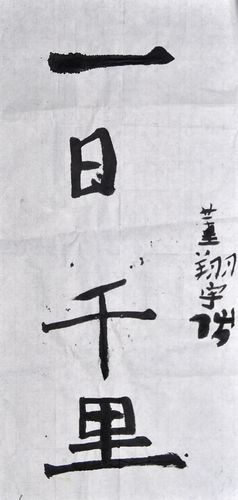 一日千里
董翔宇